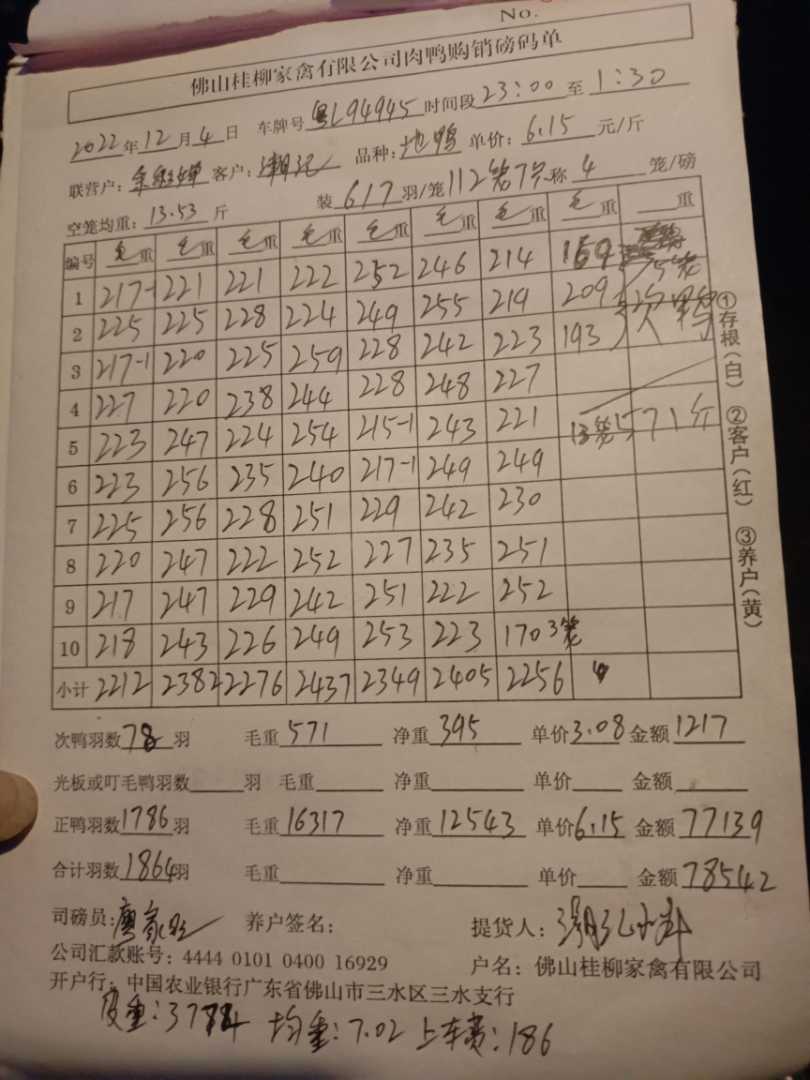 No.
佛山桂柳家禽有限公司肉鸭购销磅码单
2022年12月4日 车牌号 粤L94945 时间段 23:00 至 1:30
联营户: 客户: 潮记 品种: 地鸭 单价: 6.15 元/斤
空笼均重: 13.53 斤 装 6/17 羽/笼 112笼7只 称 4 笼/磅
编号 毛重 毛重 毛重 毛重 毛重 毛重 毛重 毛重 重
1 217-1 221 221 222 252 246 214 159
2 225 225 228 224 249 255 219 209
3 217-1 220 225 259 228 242 223 193
4 227 220 238 244 228 248 227
5 223 247 224 254 215-1 243 221 13笼 571斤
6 223 256 235 240 217-1 249 249
7 225 256 228 251 229 242 230
8 220 247 222 252 227 235 251
9 217 247 229 242 251 222 252
10 218 243 226 249 253 223 170 3笼
小计 2212 2382 2276 2437 2349 2405 2256
①存根(白) ②客户(红) ③养户(黄)
次鸭羽数 78 羽 毛重 571 净重 395 单价 3.08 金额 1217
光板或叮毛鸭羽数 羽 毛重 净重 单价 金额
正鸭羽数 1786 羽 毛重 16317 净重 12543 单价 6.15 金额 77139
合计羽数 1864 羽 毛重 净重 单价 金额 78542
司磅员: 养户签名: 提货人:
公司汇款账号: 4444 0101 0400 16929 户名: 佛山桂柳家禽有限公司
开户行: 中国农业银行广东省佛山市三水区三水支行
皮重: 3774 均重: 7.02 上车费: 186